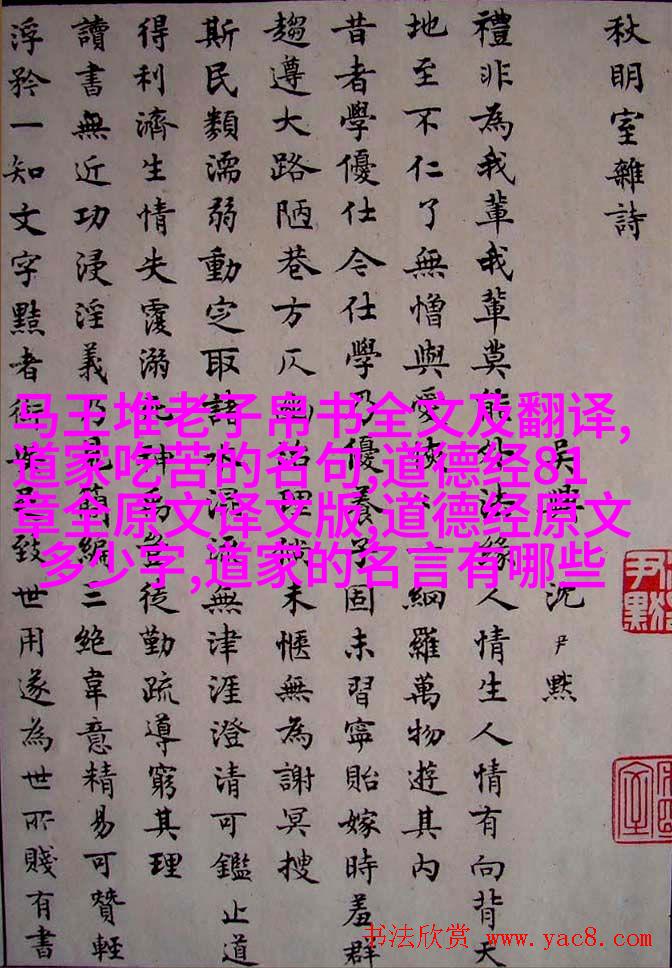 秋明室雜詩
吳興 沈尹默
禮非為我輩我輩莫能
人情生人情有向背天
地至不仁了無憎與愛
網羅萬物遊其內
昔者學優仕今仕學乃優養子固未習寧貽嫁時羞群
趨遵大路陋巷方仄
未愜無為謝冥搜
斯民類濡弱動定取諸水濕
無津涯澄清可鑑止道
得利濟生情失覆溺
神焉豈徒勤疏導窮其理
讀書無近功浸淫義乃見簡編三絕韋意精易可贊輕
浮矜一知文字黠者
致世用遂為世所賤有書
马王堆老子帛书全文及翻译,
道家吃苦的名句,道德经81
章全原文译文版,道德经原文
多少字,道家的名言有哪些
尹默
书法欣赏 www.yac8.com